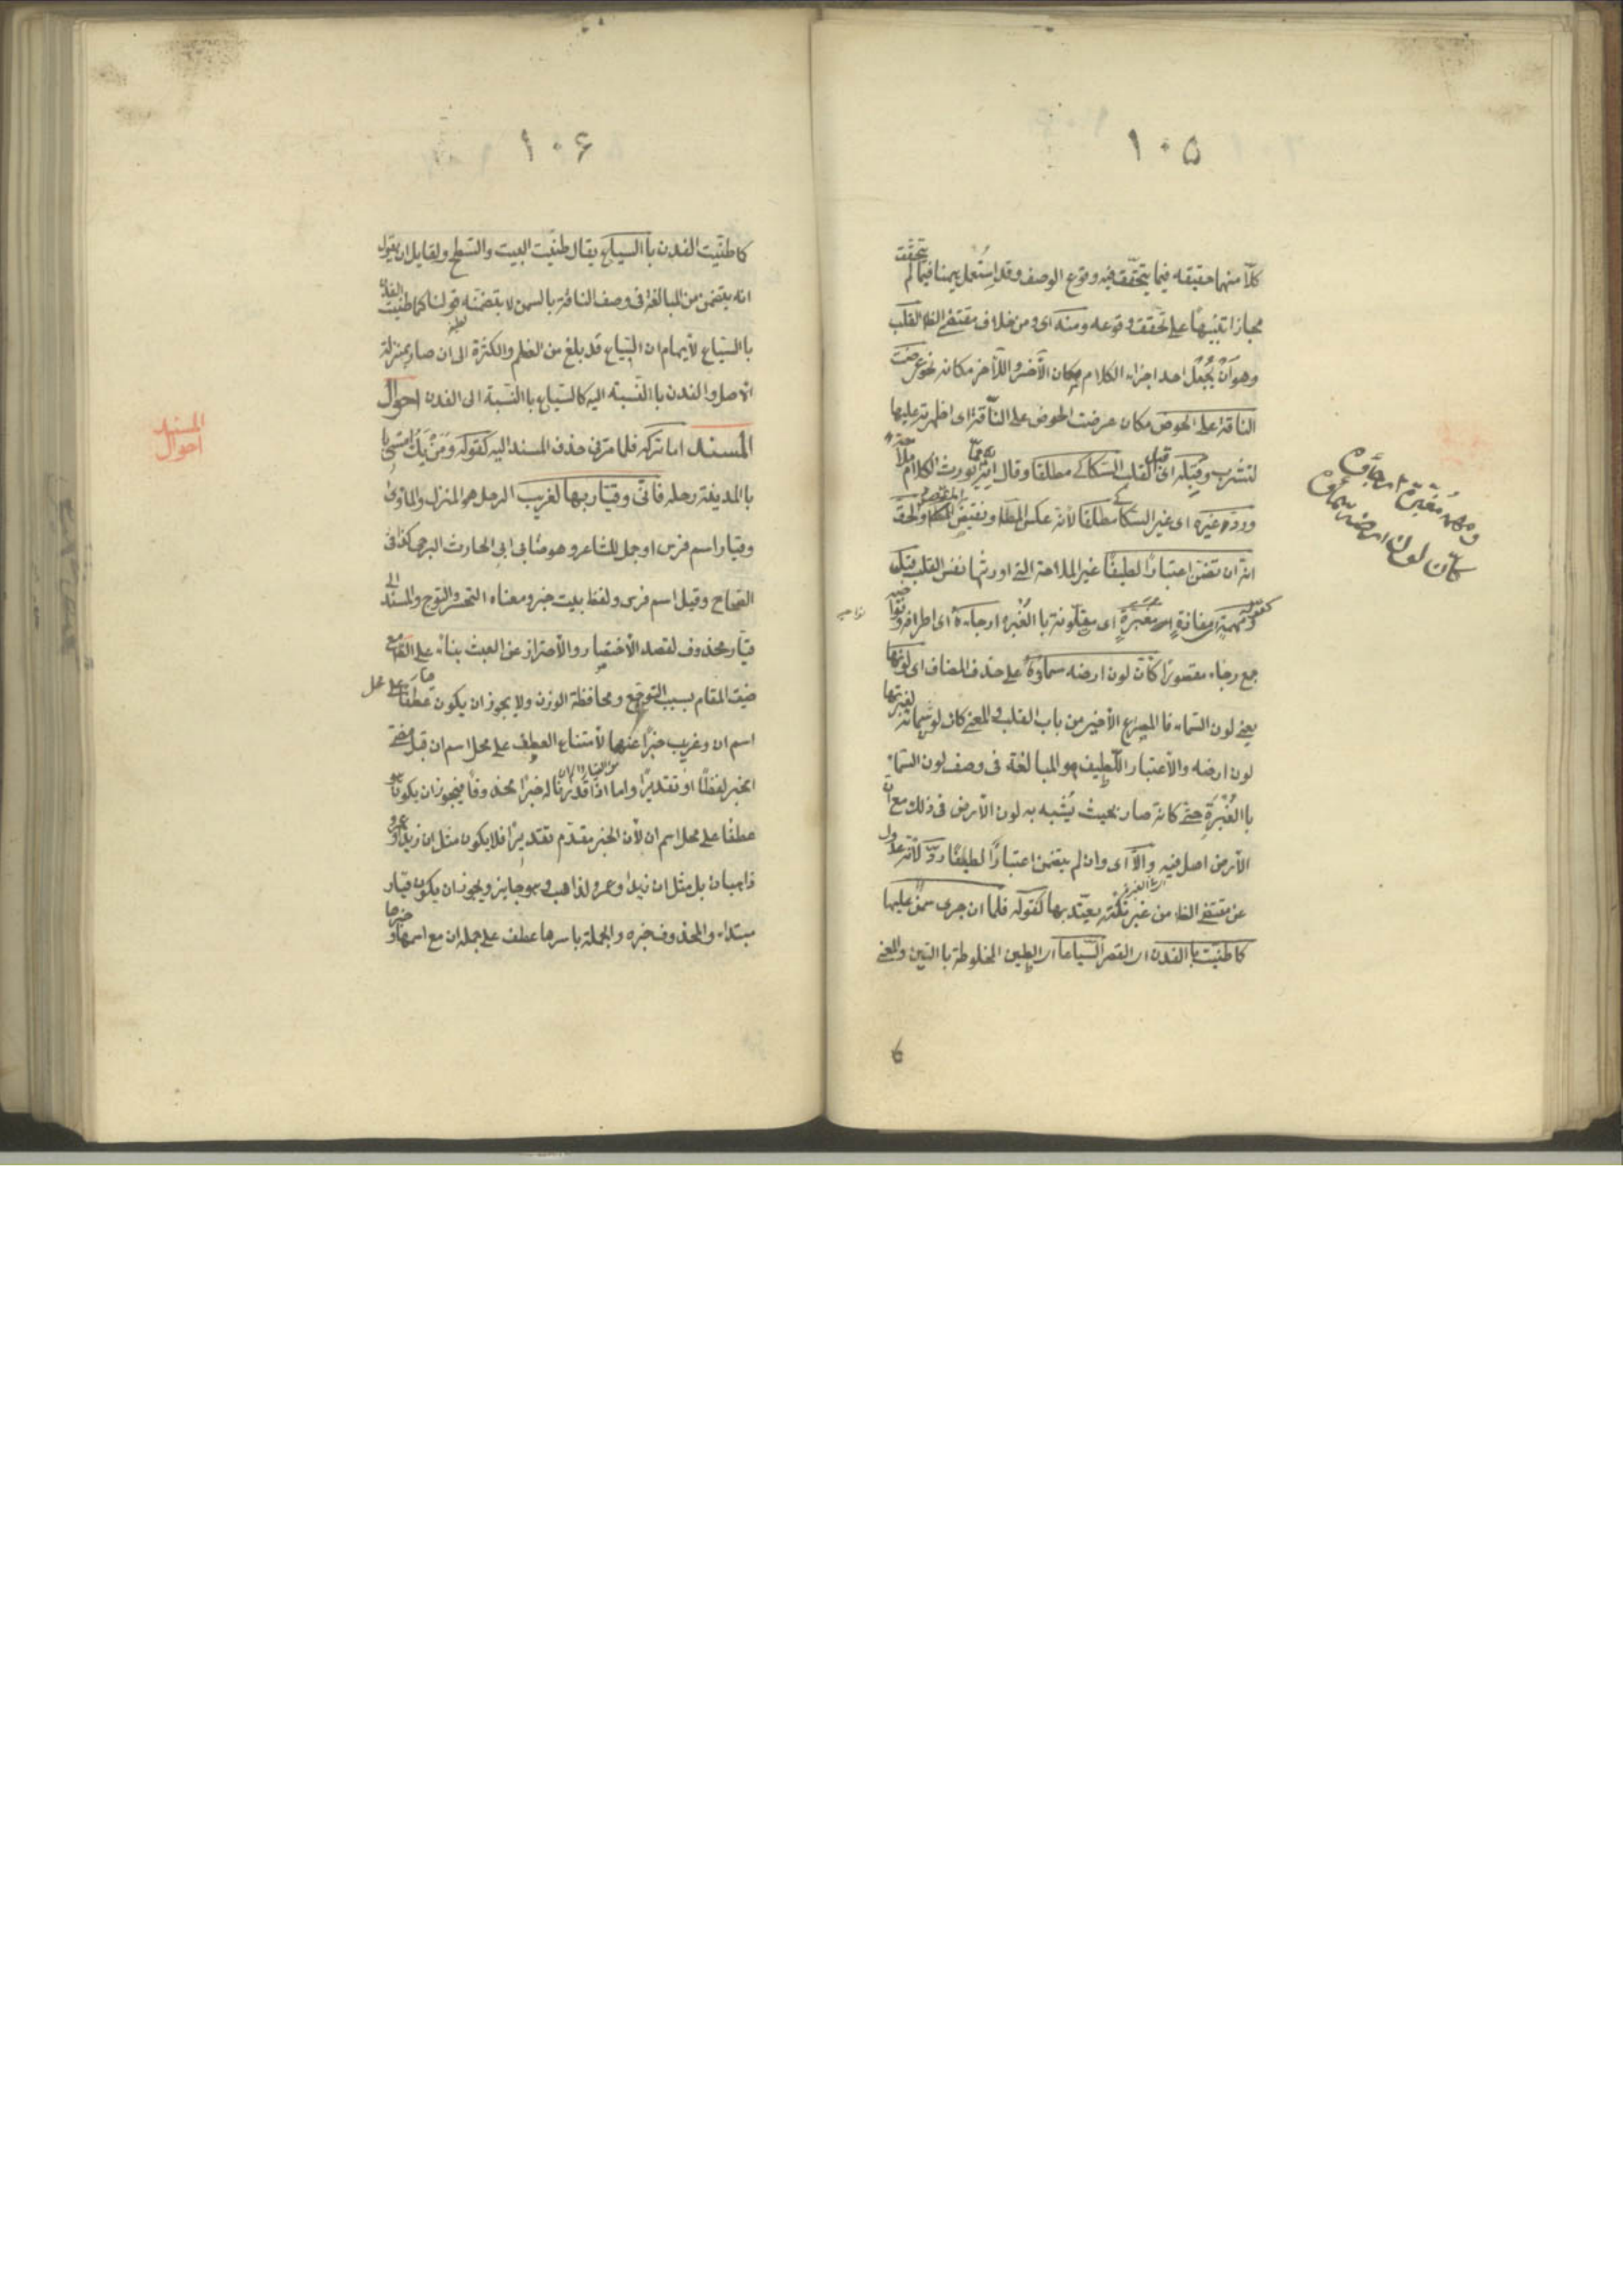 ١٠٥
كلّا منهما حقيقه فيما يتحقّق فيه وقوع الوصف وقد اُستُعمل ههنا فيما لم يتحقّق
مجازا تنبيهًا على تحقق وقوعه ومنه اى ومن خلاف مقتضى الظا القلب
وهو اَن يُجعلَ احد اجزاء الكلام مكان الآخر والآخر مكانه نحو عرضت
الناقة على الحوض مكان عرضت الحوض على النّاقة اى اظهرته عليها
لتشرب وقَبِلَه اى قبل القلب السّكاكے مطلقا وقال انّه يورث الكلام ملاحة
وردّه غيره اى غير السّكاكے مطلقا لأنّه عكس المط ونقيض المقصود والحق
انّه ان تضمّن اعتبارًا لطيفًا غير الملاحة التے اورثها نفس القلب قبل
كقوله ومهمةٍ اى مفازةٍ مغبرّةٍ اى متلونة باالغُبرة ارجاءهُ اى اطرافه ونواحيه
جمع رجاء مقصورًا كانّ لون ارضه سماؤهُ على حذف المضاف اى لونها
يعنے لون السّماء فا المصراع الأخير من باب القلب والمعنے كان لون سمائه لغبرتها
لون ارضه والأعتبار اللّطيف هو المبالغة فى وصف لون السّماء
باالغُبرَةِ حتے كانّه صار بحيث يُشبه به لون الأرض فى ذلك مع انّ
الأرض اصل فيه والاّ اى وان لم يتضمن اعتبارًا لطيفًا ردّ لأنّه عدول
عن مقتضے الظا من غير نكتة يعتدّ بها كقوله فلمّا ان جرى سمنٌ عليها
كما طيّنت باالفدن اى القصر السّياعا اى الطين المخلوطة باالتبن والمعنے
ومهمه مغبرّة ارجاؤه
كانّ لون ارضه سماؤه
١٠۶
كما طيّنت الفدن باالسياع يقال طيّنت البيت والسّطح ولقايل ان يقول
انه يتضمن من المبالغة فى وصف الناقة بالسمن لا يتضمنه قولنا كما طيّنت الفدن
باالسّياع لأيهام ان السّياع قد بلغ من العظم والكثرة الى ان صار بمنزلة
الأصل والفدن باالنّسبة اليه كالسّياع باالنّسبة الى الفدن احوال
المسند اما تركه فلما مرّ فى حذف المسند اليه كقوله ومَن يكُ امسى
باالمدينة رحله فانّى وقيّار بها لغريب الرحل هو المنزل والمأوى
وقيار اسم فرس او جمل للشاعر وهو ضابى ابى الحارث البرجمى كذا فى
الصّحاح وقيل اسم فرس ولفظ بيت خبر ومعناه التحسّر والتّوجع والمسند الى
قيّار محذوف لقصد الأختصار والأحتراز عن العبث بناءً على الظا مع
ضيق المقام بسبب التوجّع ومحافظة الوزن ولا يجوز ان يكون عطفًا على محل
اسم ان وغريب خبرًا عنهما لأمتناع العطف على محل اسم ان قبل مضے
الخبر لفظًا او تقديرًا واما اذا قدّرنا له خبرًا محذوفًا فيجوز ان يكون هو
عطفًا على محل اسم ان لأن الخبر مقدّم تقديرًا فلا يكون مثل ان زيدًا وعمرو
ذاهبان بل مثل ان زيدًا وعمرو لذاهب وهو جايز ويجوز ان يكون قيّار
مبتداء والمحذوف خبره والجملة باسرها عطف على جملة ان مع اسمها وخبرها
المسند
احوال